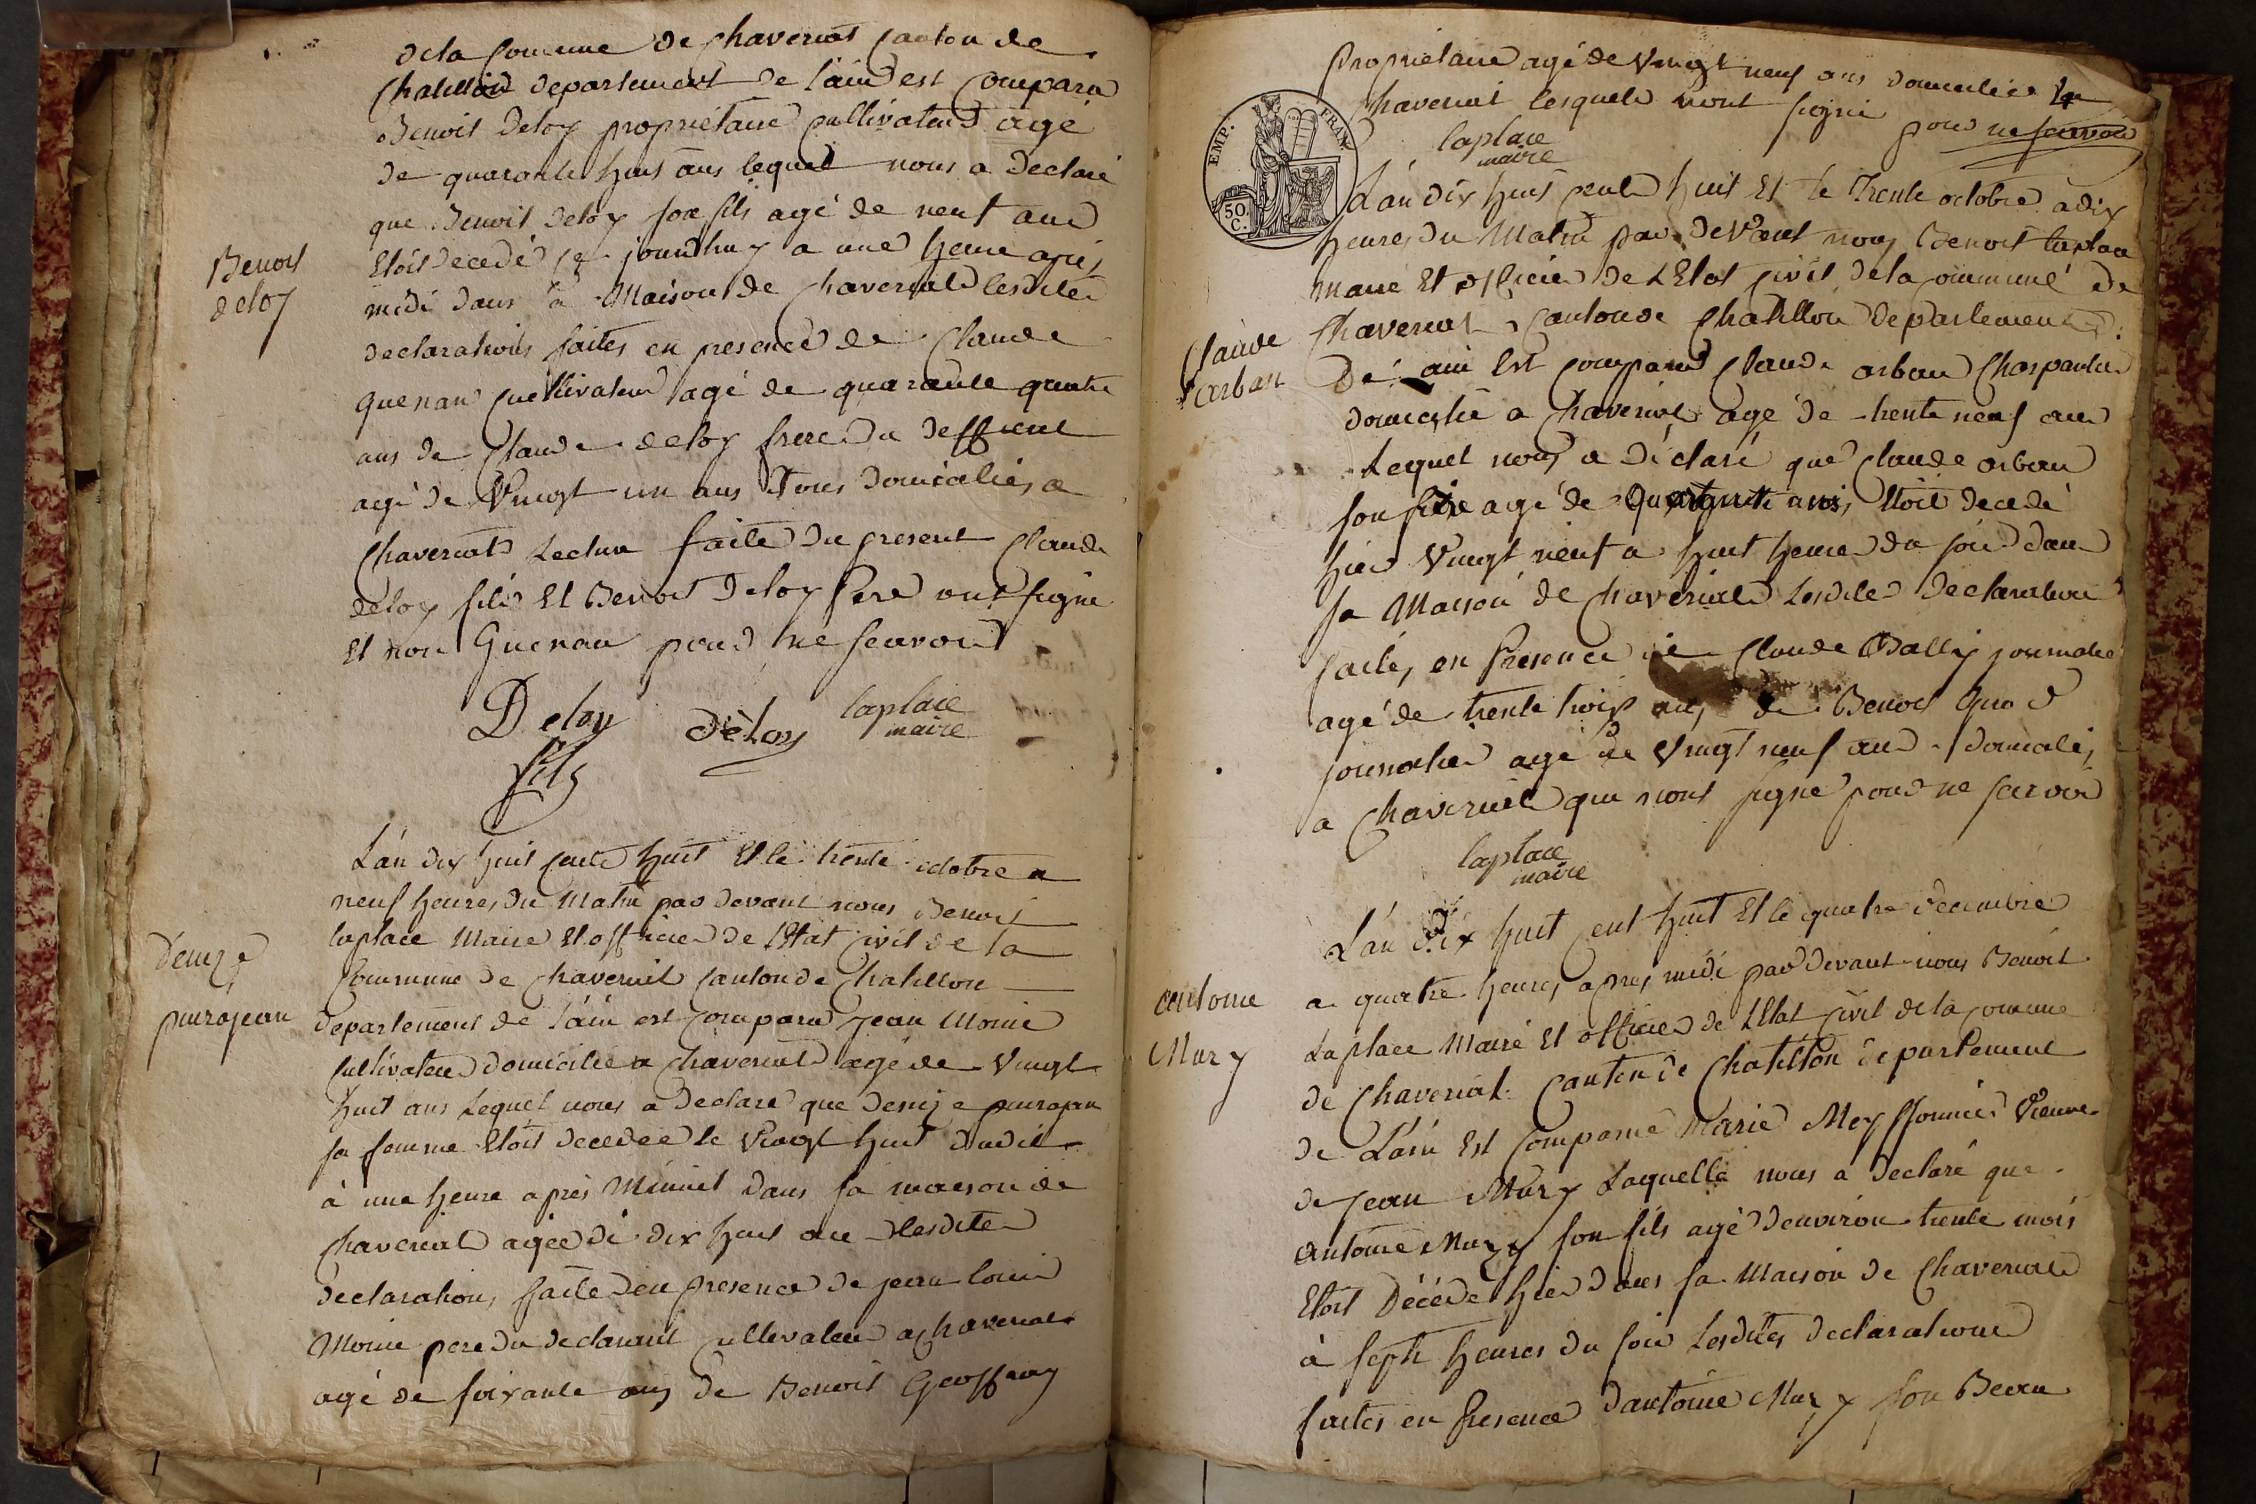 de la Commune de Chaveriat Canton de
Chatillon departement de l'ain est Comparu
Benoit Deloy propriétaire Cultivateur agé
de quarante huit ans lequel nous a declaré
que Benoit Deloy son fils agé de neuf ans
Etoit decedé ce jourdhuy a une heure après
midi dans sa Maison de Chaveriat lesdites
declarations faites en presence de Claude
Guenau Cultivateur agé de quarante quatre
ans de Claude deloy frere du deffunt
agé de Vingt un ans Tous domiciliés a
Chaveriat Lecture faite du present Claude
deloy fils Et Benoit Deloy Pere ont signé
Et non Guenau pour ne scavoir
Benoit
deloy
Deloy fils
dèloy
laplace
maire
L'an dix huit cent huit Et le trente octobre a
neuf heures du Matin par devant nous Benoit
laplace Maire Et officier de l'Etat Civil de la
Commune de Chaveriat Canton de Chatillon
departement de l'ain est Comparu jean Moine
Cultivateur domicilié a Chaveriat agé de Vingt
huit ans Lequel nous a declaré que denize
sa femme Etoit decedée le Vingt huit dudit
à une heure après Minuit dans sa maison de
Chaveriat agée de dix huit ans lesdites
declarations faite en presence de jean louis
Moine pere du declarant Cultivateur a Chaveriat
agé de soixante ans de Benoit Geoffray
denize
Propriétaire agé de Vingt neuf ans domiciliés
Chaveriat lesquels n'ont signé pour ne scavoir
laplace
maire
EMP. FRAN.
50. C.
L'an dix huit cent huit Et le Trente octobre a dix
heures du Matin par devant nous Benoit laplace
maire Et officier de L'Etat Civil de la Commune de
Chaveriat Canton de Chatillon departement
De ain Est Comparu Claude arban Charpantier
domicilié a Chaveriat agé de trente neuf ans
Lequel nous a déclaré que Claude arban
son agé de Etoit decedé
hier Vingt neuf a huit heures du soir dans
sa Maison de Chaveriat Lesdites Declarations
faites en Presence de Claude journalier
agé de trente trois ans de Benoit
journalier agé de Vingt neuf ans domiciliés
a Chaveriat qui n'ont signé pour ne scavoir
Claude
arban
laplace
maire
L'an Dix huit cent huit Et le quatre decembre
a quatre heures apres midi par devant nous Benoit
Laplace Maire Et officier de L'Etat Civil de la Comune
de Chaveriat Canton de Chatillon departement
de L'ain Est Comparue Marie Veuve
de Jean Mury Laquelle nous a declaré que
Antoine Mury son fils agé d'environ trente mois
Etoit Décédé hier dans sa Maison de Chaveriat
à sept heures du soir Lesdites declarations
faites en Presence d'antoine Mury son Beau
antoine
Mury